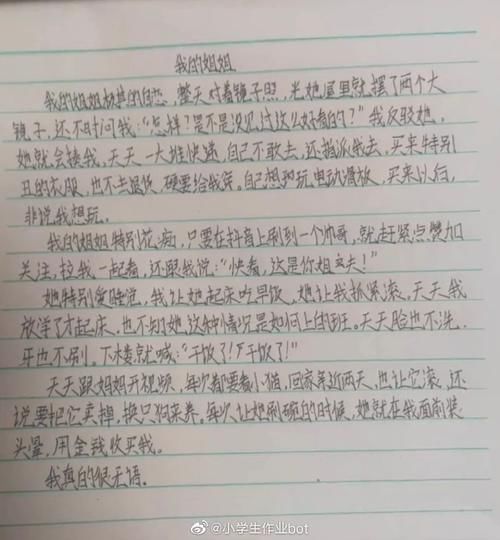 我的姐姐
我的姐姐极其的自恋，整天对着镜子照，光她屋里就摆了两个大
镜子，还不时问我：“怎样？是不是没见过这么好看的？”我反驳她，
她就会揍我，天天一大堆快递，自己不敢去，还指派我去，买来特别
丑的衣服，也不去退货，硬要给我穿。自己想玩电动滑板，买来以后，
非说我想玩。
我的姐姐特别花痴，只要在抖音上刷到一个帅哥，就赶紧点赞加
关注，拉我一起看，还跟我说：“快看，这是你姐夫！”
她特别爱睡觉，我让她起床吃早饭，她让我抓紧滚，天天我
放学了才起床，也不知她这种情况是如何上的班。天天脸也不洗，
牙也不刷。下楼就喊：“干饭了！干饭了！”
天天跟妈妈开视频，每次都要看小猫，回家亲近两天，也让它滚，还
说要把它卖掉，换只狗来养。每次让她刷碗的时候，她就在我面前装
头晕，用金钱收买我。
我真的很无语。
@小学生作业bot